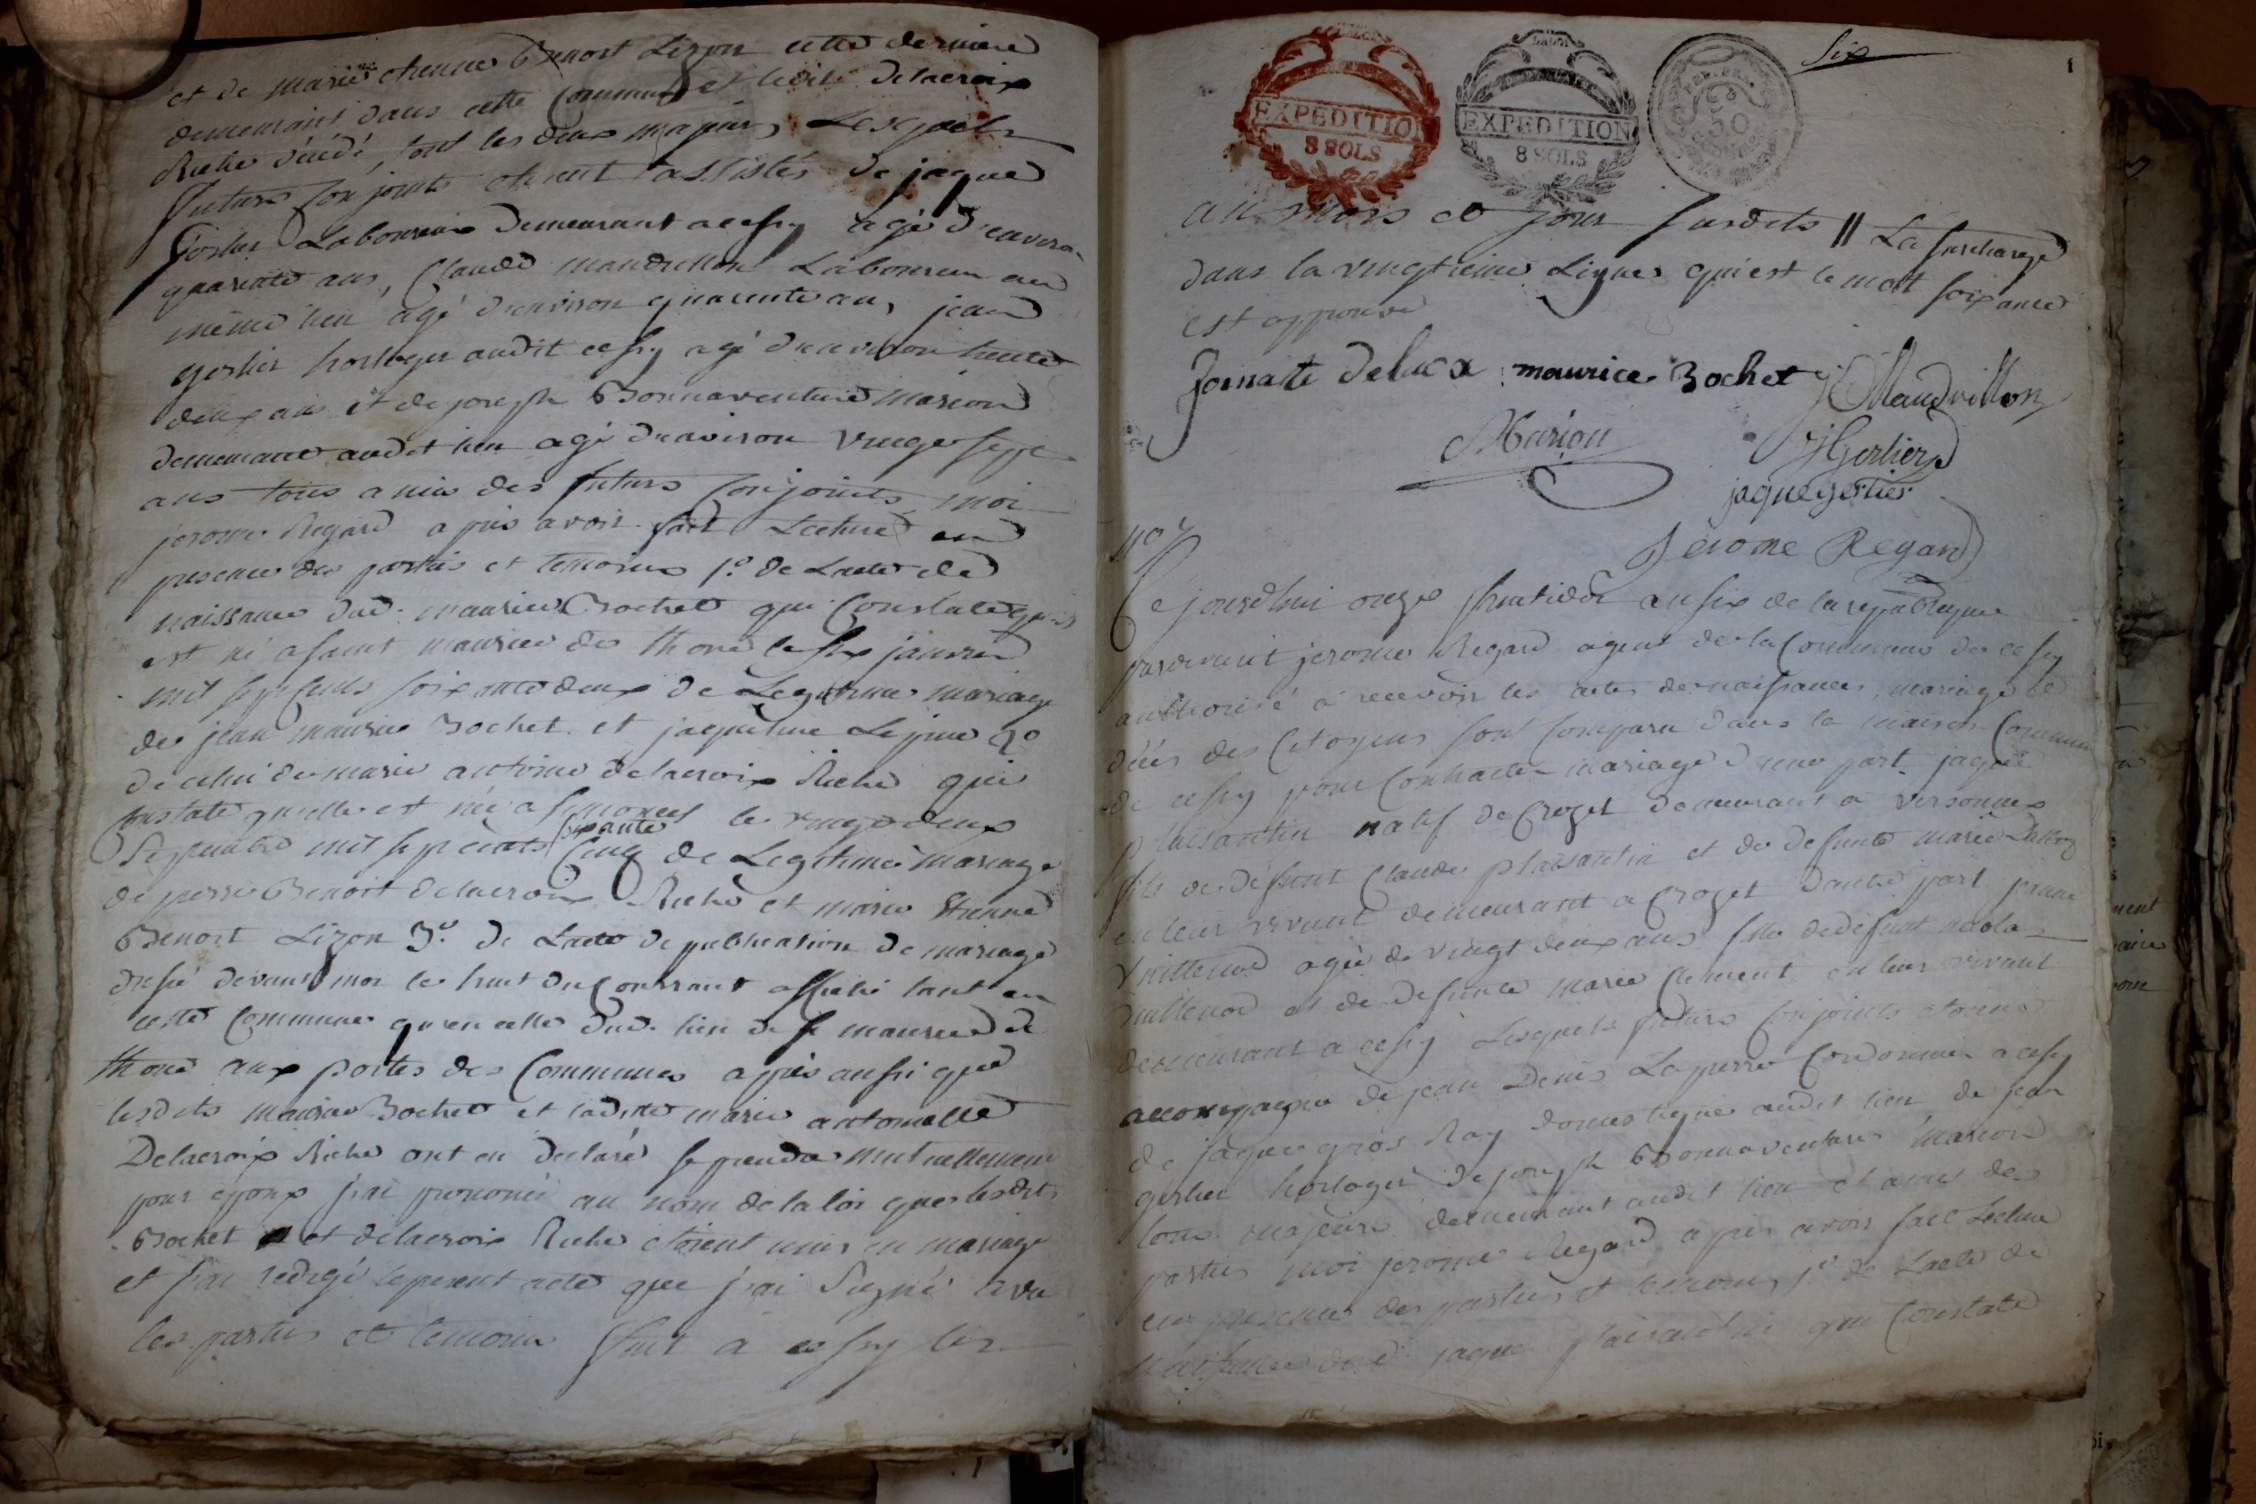 et de marie etienne Benoit Lizon cette derniere
demeurant dans cette Commune et ledit Delacroix
Riche décédé, tout les deux majeurs, Lesquels
futurs Conjoints étoient assistés de jaque
Gerlier Laboureur demeurant a cessy agé d'environ
quarante ans, Claude mandrillon Laboureur au
même lieu agé d'environ quarente ans, jean
gerlier horloger audit cessy agé d'environ trente
deux ans et de joseph Bonnaventure marion
demeurant audit lieu agé d'environ vingt sept
ans tous amis des futurs Conjoints, moi
jerome Regard apris avoir fait Lecture en
presence des parties et temoins 1.º de Lacte de
naissance dud. maurice Bochet qui Constate qu'il
est né a saint maurice de thone le six janvier
mil sept cents soixante deux de Legitime mariage
de jean maurice Bochet et jaqueline Lejeune 2º
de celui de marie antoine delacroix Riche qui
Constate quelle est née a le vingt deux
Septembre mil sept cents soixante Cinq de Legitime mariage
de pierre Benoit delacroix Riche et marie Etienne
Benoit Lizon 3.º de Lacte de publication de mariage
dressé devant moi le huit du Courrant affiché tant en
cette Commune qu'en celle dud. lieu de st maurice de
thone aux portes des Communes apris aussi que
lesdits maurice Bochet et ladite marie antoinette
Delacroix Riche ont eu declaré se prendre mutuellement
pour epoux j'ai prononcé au nom de la loi que lesdits
Bochet et delacroix Riche etoient unis en mariage
et j'ai redigé le present acte que j'ai Signé avec
les parties et temoins fait a cessy les
Six
EXPEDITION
8 SOLS
EXPEDITION
8 SOLS
50
an mois et jour susdits || La surcharge
dans la vingtieme Ligne qui est le mot soixante
est approuvé
maurice Bochet Mandrillon
Marion
J Gerlier
jaque gerlier
Jérome Regard
Ce jourdhui onze fructidor an six de la republique
pardevant jerome Regard agent de la Commune de cessy
authorisé a recevoir les actes de naissances, mariage et
décès des Citoyens sont Comparu dans la maison Commune
de cessy pour Contracter mariage d'une part jaque
plaisantin natif de Crozet demeurant a versonnex
fils de défunt Claude plaisantin et de defunte marie
en leur vivant demeurant a Crozet d'autre part jeanne
Vuittenod agée de vingt deux ans fille de defunt nicola
Vuittenod et de defunte marie Clement en leur vivant
demeurant a cessy Lesquels futurs Conjoints etoient
accompagné de jean Denis Lapierre Cordonnier a cessy
de jaque gros Ray domestique audit lieu de jean
gerlier horloger de joseph Bonnaventure marion
tous majeurs demeurant audit lieu et amis des
parties moi jerome Regard apris avoir fait Lecture
en presence des parties et temoins 1.º de Lacte de
naissance dud. jaque plaisantin qui Constate